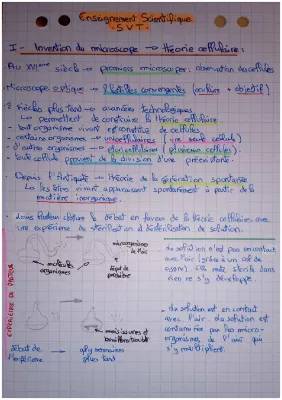 Enseignement Scientifique
- S.V.T -
I - Invention du microscope → théorie cellulaire :
Au XVIème siècle → premiers microscopes : observation de cellules
Microscope optique → 2 lentilles convergentes (oculaire + objectif)
2 siècles plus tard → avancées technologiques
↳ permettent de construire la théorie cellulaire
- tout organisme vivant est constitué de cellules
- certains organismes → unicellulaires (une seule cellule)
- d'autres organismes → pluricellulaires (plusieurs cellules)
- toute cellule provient de la division d'une précédente
Depuis l'Antiquité → théorie de la génération spontanée
↳ les êtres vivants apparaissent spontanément à partir de la
matière inorganique.
Louis Pasteur clôture le débat en faveur de la théorie cellulaire avec
une expérience de stérilisation
de solution.
EXPÉRIENCE DE PASTEUR
microorganismes
de l'air
molécules
organiques
dépôt de
poussière
- la solution n'est pas en contact
avec l'air (grâce à un col de
). Elle reste stérile donc
rien ne s'y développe.
- la solution est en contact
avec l'air. La solution est
contaminée par les micro-
organismes de l'air qui
s'y multiplient.
début de
l'expérience
qlq semaines
plus tard